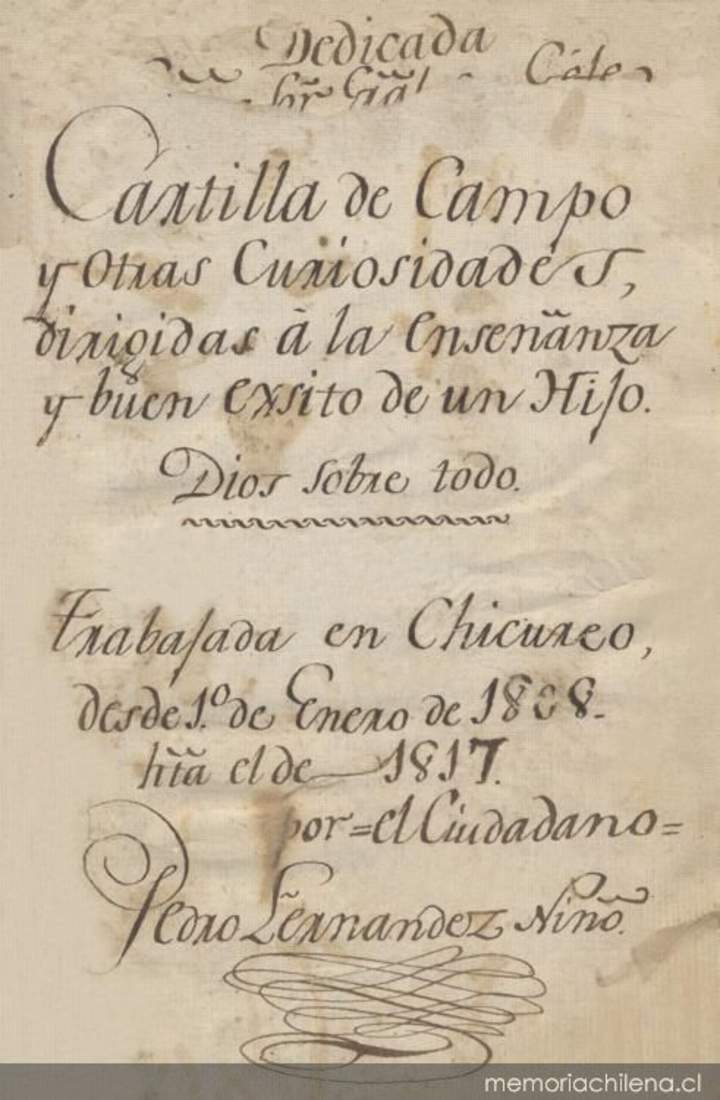 Dedicada
Cartilla de Campo
y Otras Curiosidades,
dirigidas â la enseñanza
y buen exsito de un Hijo.
Dios sobre todo.
Trabajada en Chicureo,
desde 1.º de Enero de 1808.
hťa el de 1817.
por=el Ciudadano=
Pedro Fernandez Niño.
memoriachilena.cl